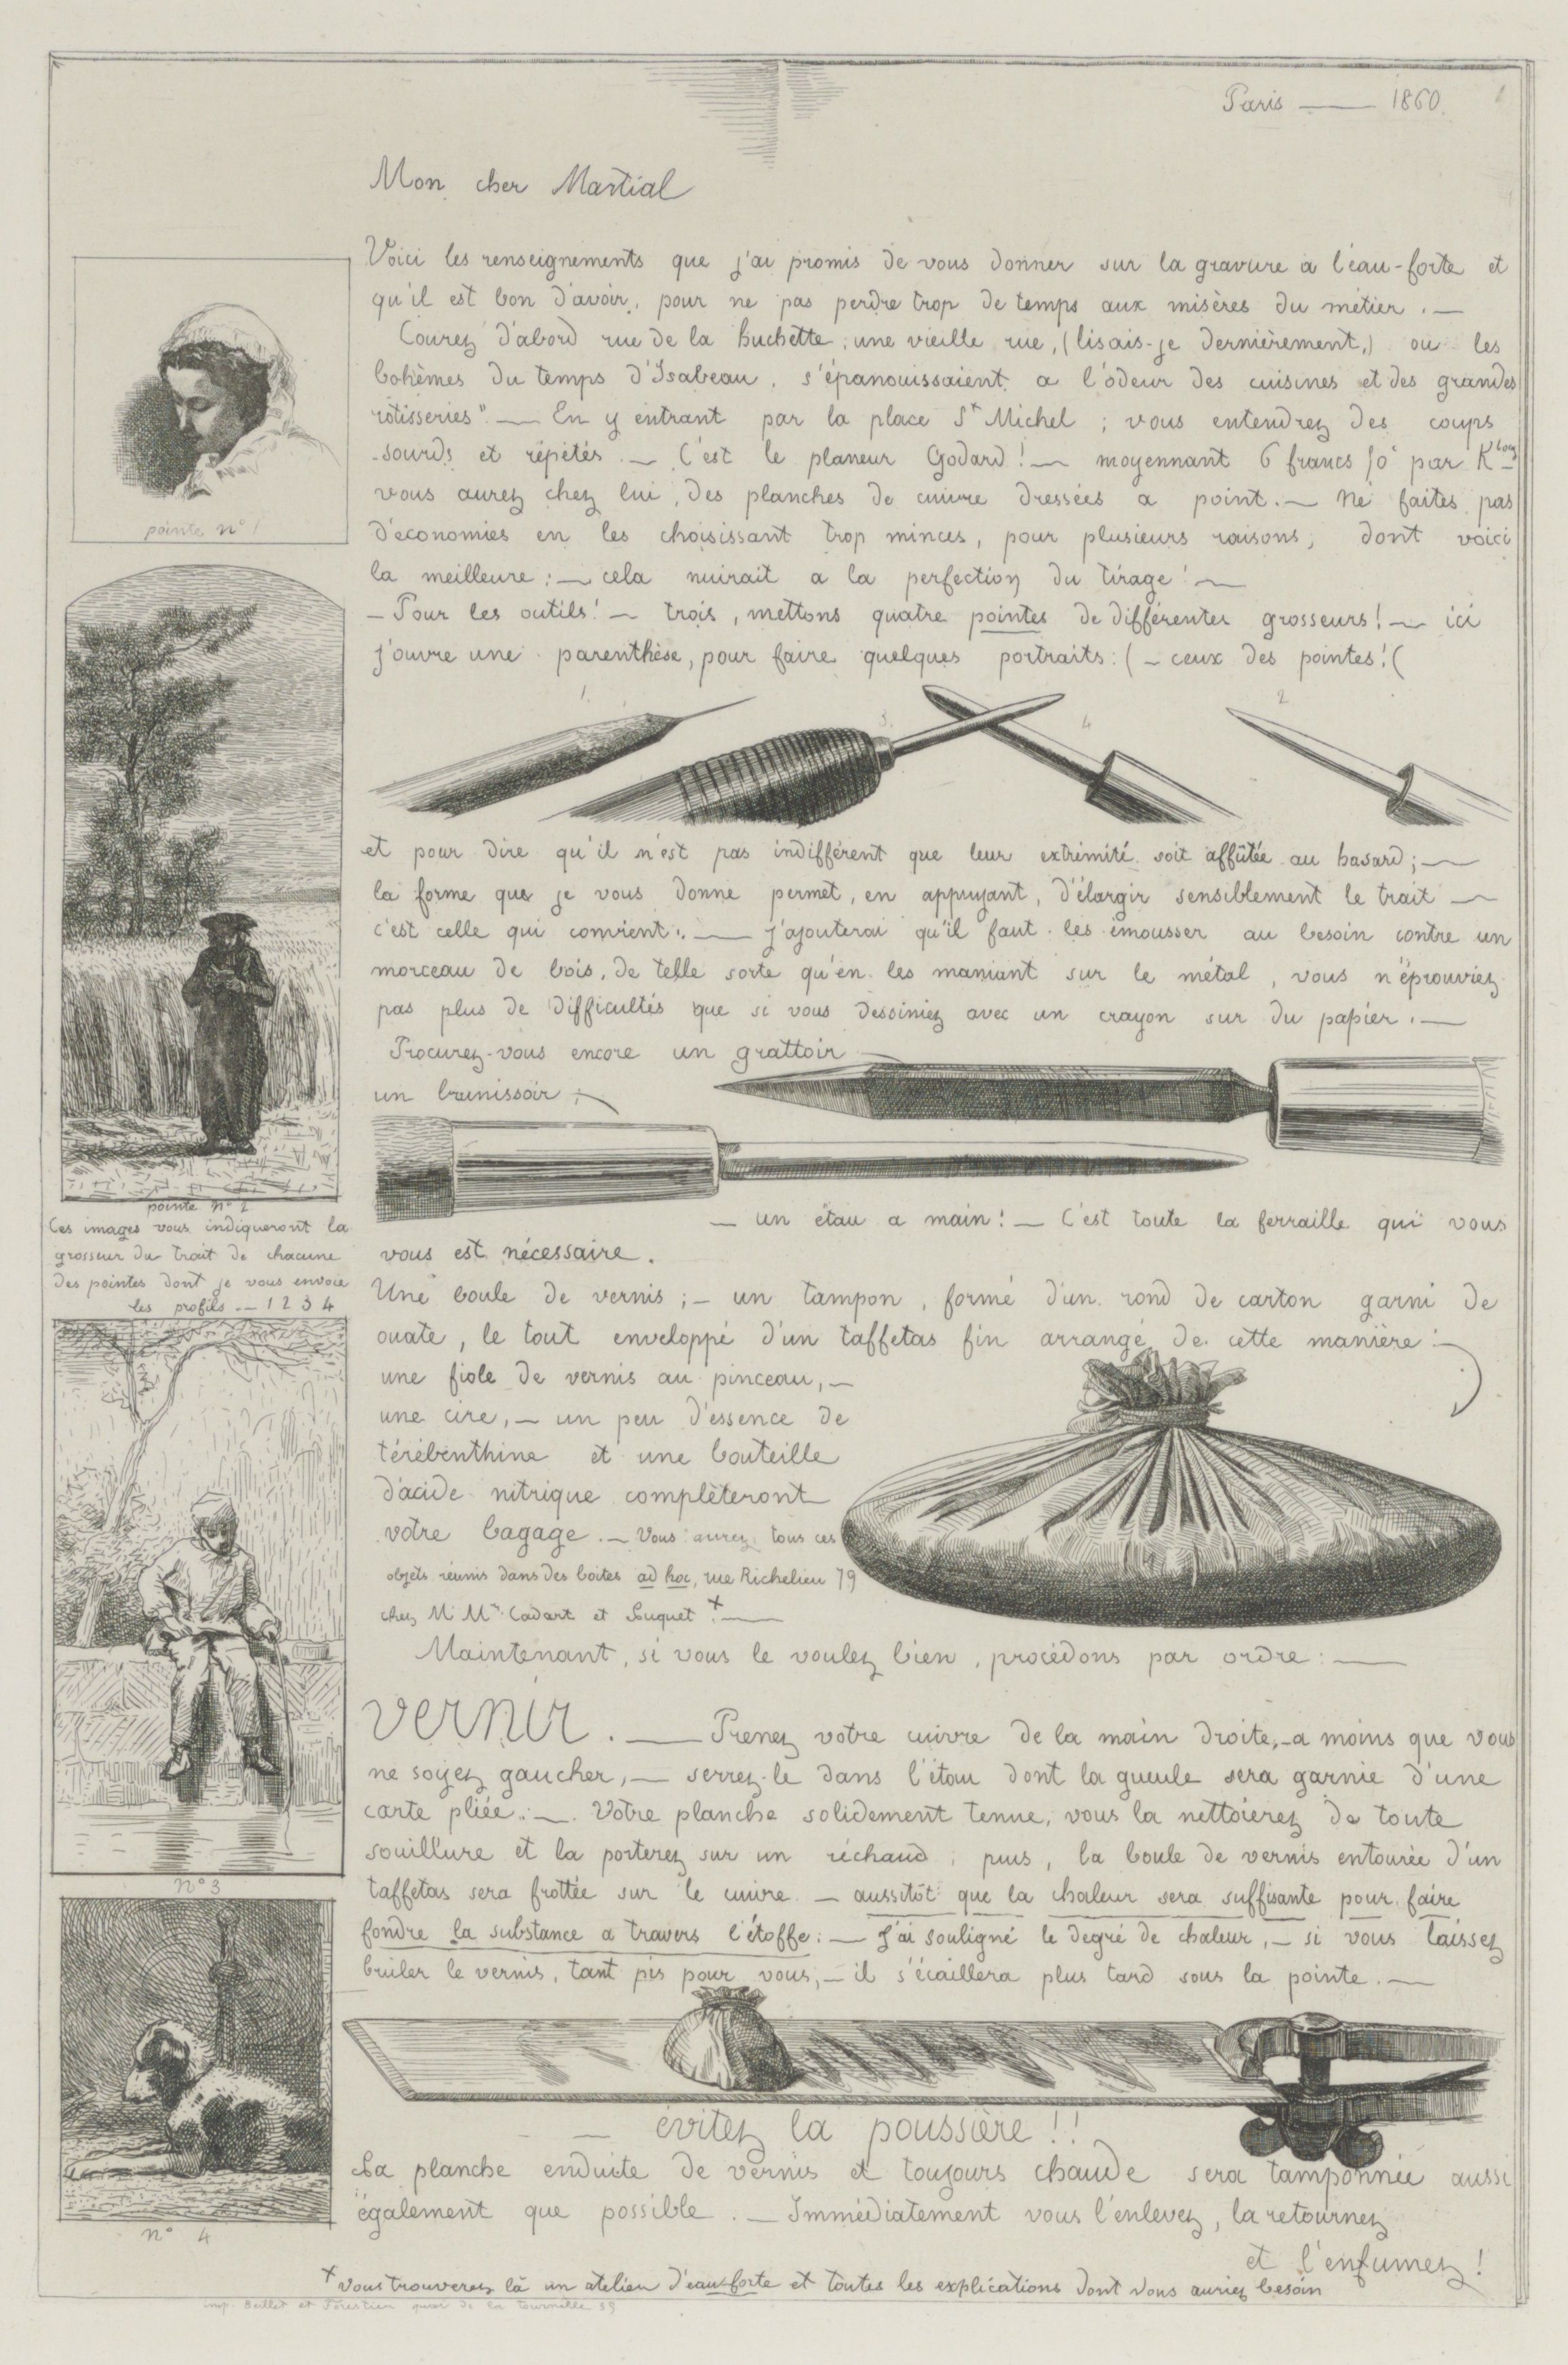 Paris — 1860.
Mon cher Martial
Voici les renseignements que j'ai promis de vous donner sur la gravure a l'eau-forte et
qu'il est bon d'avoir, pour ne pas perdre trop de temps aux misères du métier. —
Courez d'abord rue de la Huchette; une vieille rue, (lisais-je dernièrement,) ou les
bohèmes du temps d'Isabeau, s'épanouissaient a l'odeur des cuisines et des grandes
rôtisseries" — En y entrant par la place St Michel; vous entendrez des coups
sourds et répétés — C'est le planeur Godard! — moyennant 6 francs 50c par K
vous aurez chez lui, des planches de cuivre dressées a point. — Ne faites pas
d'économies en les choisissant trop minces, pour plusieurs raisons, dont voici
la meilleure: — cela nuirait a la perfection du tirage! —
— Pour les outils! — trois, mettons quatre pointes de différentes grosseurs! — ici
j'ouvre une parenthèse, pour faire quelques portraits: ( — ceux des pointes! (
1 3 4 2
et pour dire qu'il n'est pas indifférent que leur extrémité soit affûtée au hasard; —
la forme que je vous donne permet, en appuyant, d'élargir sensiblement le trait —
c'est celle qui convient. — j'ajouterai qu'il faut les émousser au besoin contre un
morceau de bois, de telle sorte qu'en les maniant sur le métal, vous n'éprouviez
pas plus de difficultés que si vous dessiniez avec un crayon sur du papier. —
Procurez-vous encore un grattoir —
un brunissoir; —
— un étau a main! — C'est toute la ferraille qui vous
vous est nécessaire.
Une boule de vernis; — un tampon, formé d'un rond de carton garni de
ouate, le tout enveloppé d'un taffetas fin arrangé de cette manière: —
une fiole de vernis au pinceau, —
une cire, — un peu d'essence de
térébenthine et une bouteille
d'acide nitrique complèteront
votre bagage. — Vous aurez tous ces
objets réunis dans des boites ad hoc, rue Richelieu 79
chez M Mrs Cadart et Luquet + —
Maintenant, si vous le voulez bien, procédons par ordre: —
vernir. — Prenez votre cuivre de la main droite, — a moins que vous
ne soyez gaucher, — serrez-le dans l'étau dont la gueule sera garnie d'une
carte pliée. — Votre planche solidement tenue, vous la nettoierez de toute
souillure et la porterez sur un réchaud; puis, la boule de vernis entourée d'un
taffetas sera frottée sur le cuivre — aussitôt que la chaleur sera suffisante pour faire
fondre la substance a travers l'étoffe: — J'ai souligné le degré de chaleur, — si vous laissez
bruler le vernis, tant pis pour vous, — il s'écaillera plus tard sous la pointe. —
— évitez la poussière!!
La planche enduite de vernis et toujours chaude sera tamponnée aussi
également que possible. — Immédiatement vous l'enlevez, la retournez
et l'enfumez!
+ Vous trouverez là un atelier d'eau-forte et toutes les explications dont vous auriez besoin
imp. Beillet et Forestier quai de la tournelle 35
pointe n° 1
pointe n° 2
Ces images vous indiqueront la
grosseur du trait de chacune
des pointes dont je vous envoie
les profils. — 1 2 3 4
n° 3
n° 4